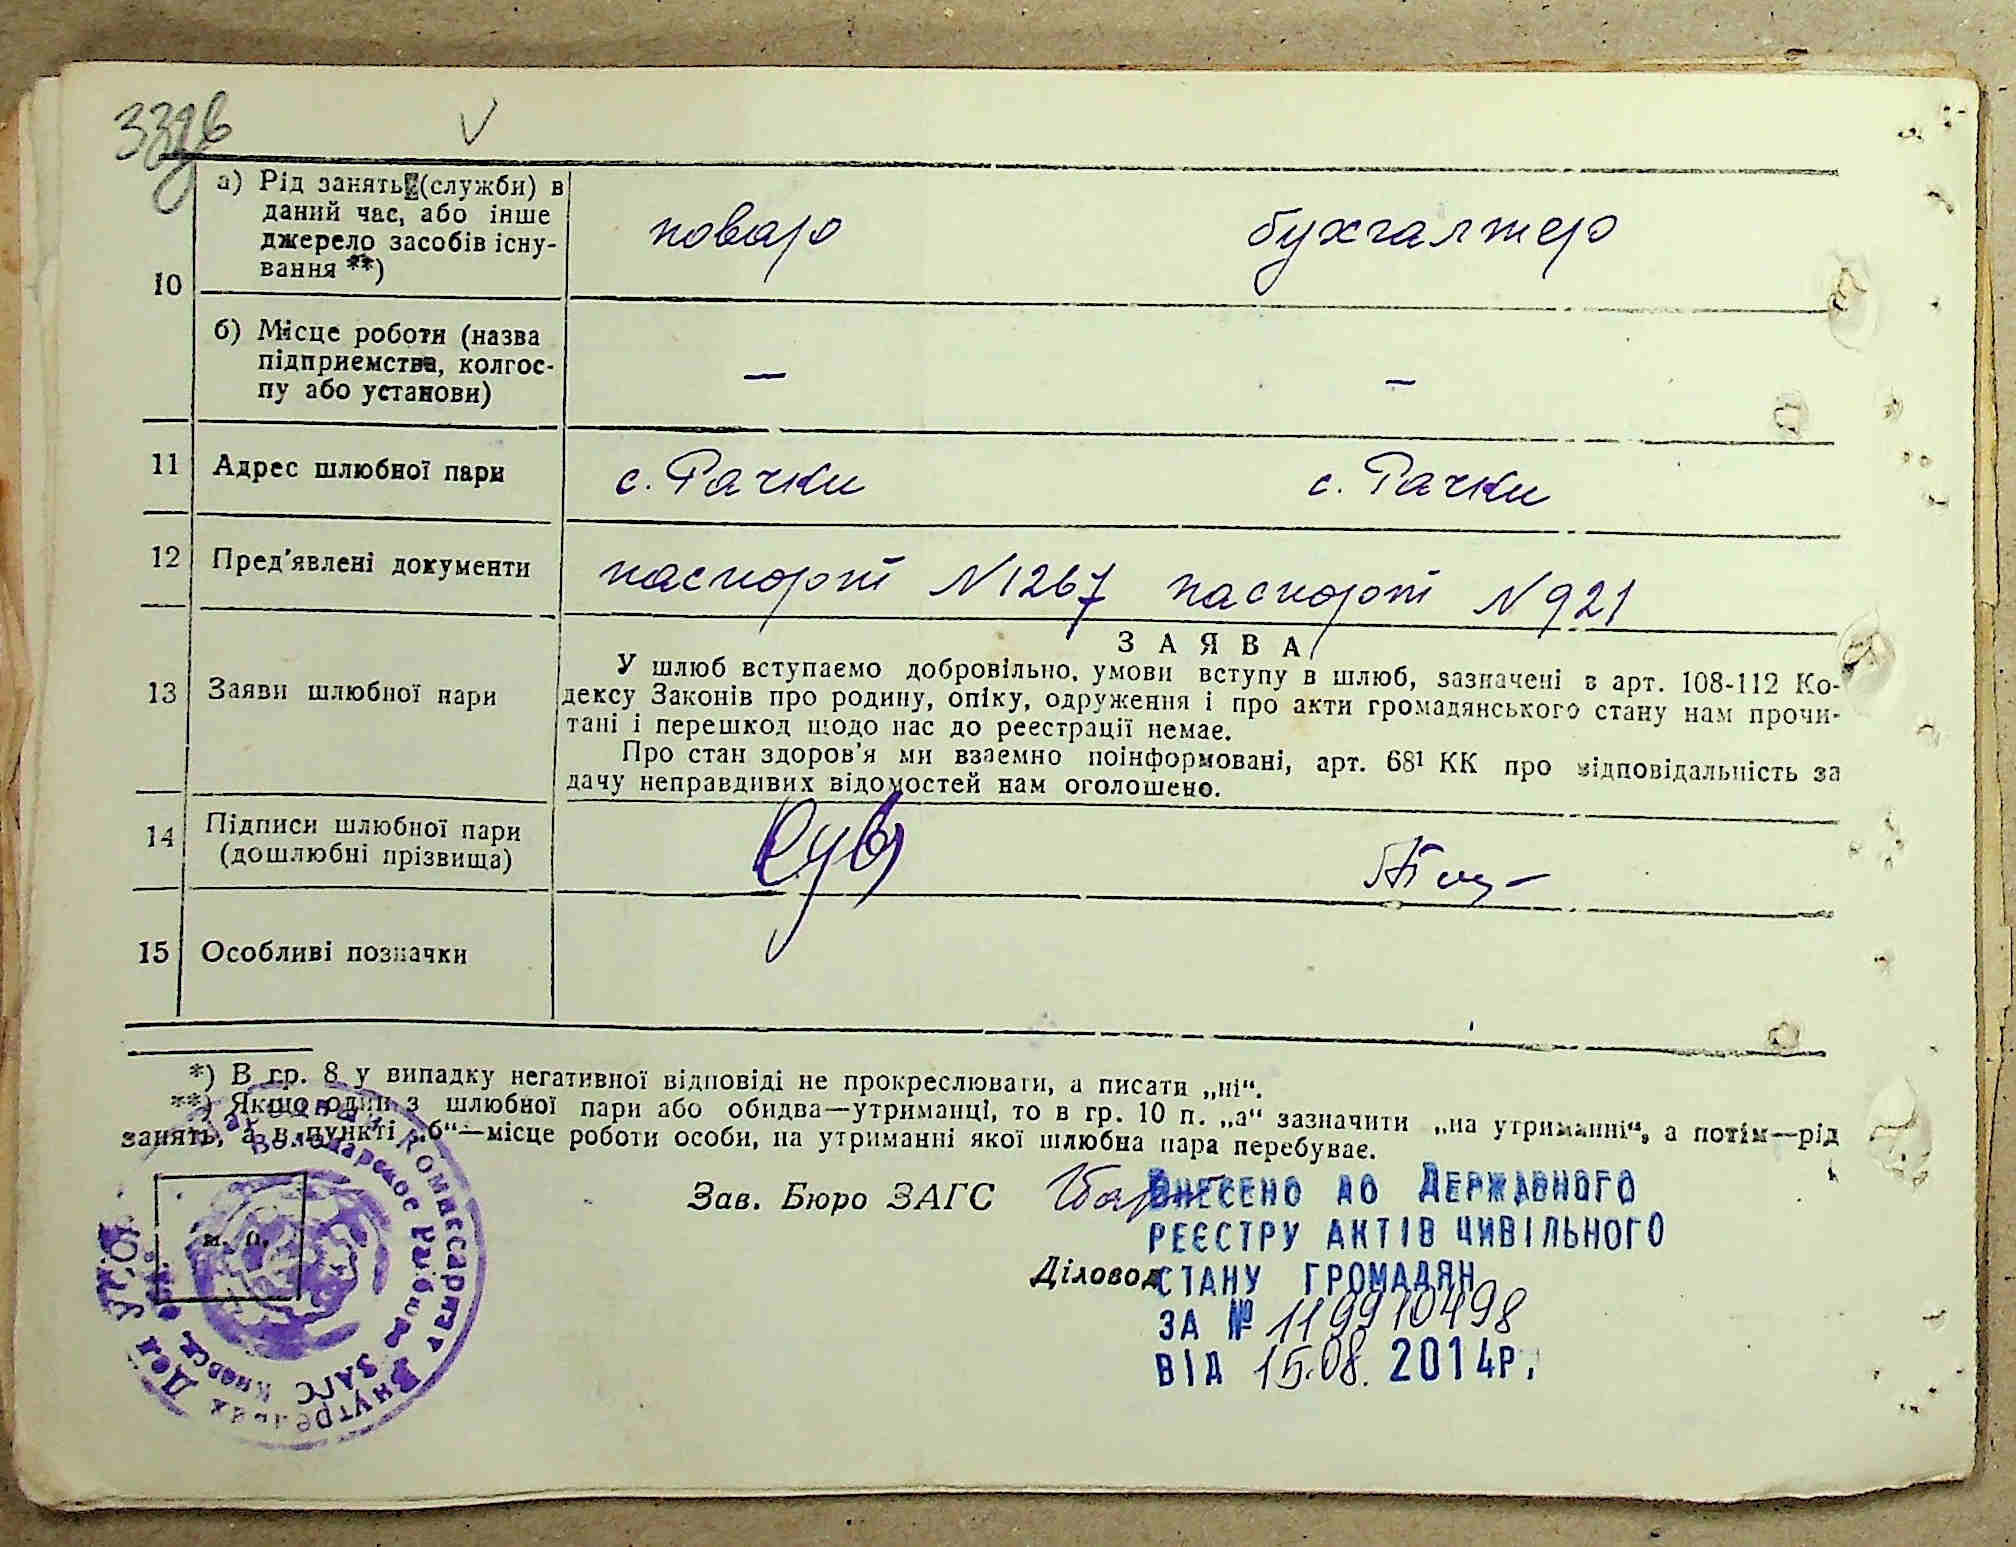 а) Рід занять (служби) в
даний час, або інше
джерело засобів існу-
вання **)
повар
бухгалтер
10
б) Місце роботи (назва
підприємства, колгос-
пу або установи)
—
—
11
Адрес шлюбної пари
с. Рачки
с. Рачки
12
Пред'явлені документи
паспорт №1267 паспорт №921
13
Заяви шлюбної пари
ЗАЯВА
У шлюб вступаємо добровільно, умови вступу в шлюб, зазначені в арт. 108-112 Ко-
дексу Законів про родину, опіку, одруження і про акти громадянського стану нам прочи-
тані і перешкод щодо нас до реестрації немає.
Про стан здоров'я ми взаємно поінформовані, арт. 68¹ КК про відповідальність за
дачу неправдивих відомостей нам оголошено.
14
Підписи шлюбної пари
(дошлюбні прізвища)
15
Особливі позначки
*) В гр. 8 у випадку негативної відповіді не прокреслювати, а писати „ні“.
**) Якщо один з шлюбної пари або обидва—утриманці, то в гр. 10 п. „а“ зазначити „на утриманні“, а потім—рід
занять, а в пункті „б“—місце роботи особи, на утриманні якої шлюбна пара перебуває.
м. п.
Зав. Бюро ЗАГС
Діловод
ВНЕСЕНО ДО ДЕРЖАВНОГО
РЕЄСТРУ АКТІВ ЦИВІЛЬНОГО
СТАНУ ГРОМАДЯН
ЗА № 119910498
ВІД 15.08. 2014р.
Комиссариат Внутренних Дел
Володарское Районное
ЗАГС Киевск